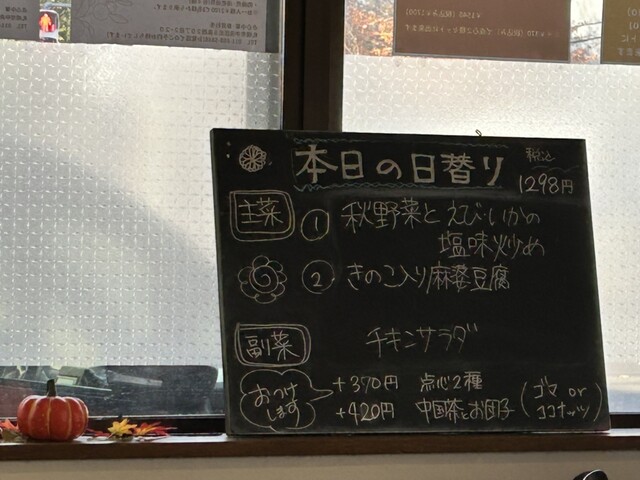 本日の日替り 税込 1298円
主菜 ① 秋野菜と えび・いかの
塩味炒め
② きのこ入り麻婆豆腐
副菜 チキンサラダ
おつけします
+370円 点心2種
+420円 中国茶とお団子 (ゴマ or ココナッツ)